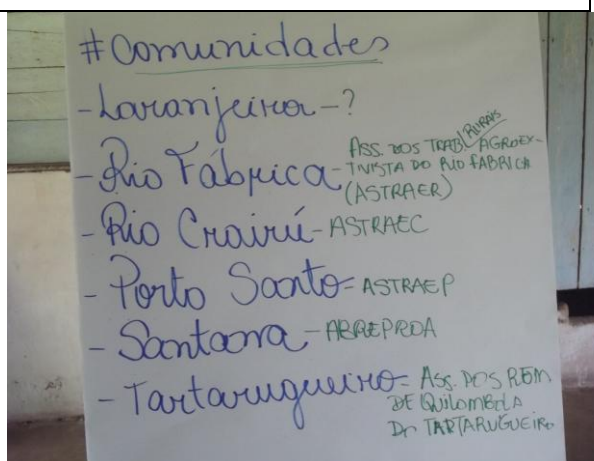 #Comunidades
- Laranjeira - ?
- Rio Fábrica - Ass. dos Trab. Rurais Agroex-
tivista do Rio Fabrica
(ASTRAER)
- Rio Crairú - ASTRAEC
- Porto Santo = ASTRAEP
- Santana - ABREPROA
- Tartarugueiro = Ass. dos Rem
de Quilombola
Do TARTARUGUEIRO